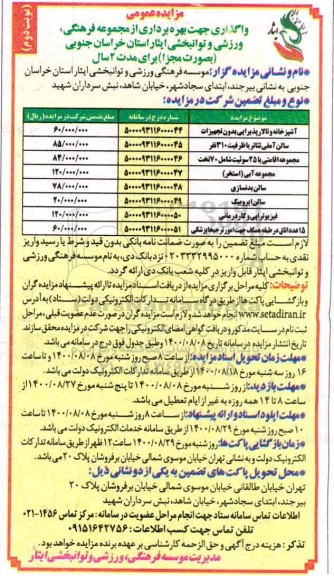 مزایده عمومی
(نوبت دوم)
واگذاری جهت بهره برداری از مجموعه فرهنگی،
ورزشی و توانبخشی ایثار استان خراسان جنوبی
(بصورت مجزا) برای مدت ۲ سال
*نام و نشانی مزایده گزار: موسسه فرهنگی ورزشی و توانبخشی ایثار خراسان
جنوبی به نشانی بیرجند، ابتدای سجادشهر، خیابان شاهد، نبش سرداران شهید
*نوع و مبلغ تضمین شرکت در مزایده:
موضوع مزایده شماره درج در سامانه مبلغ تضمین شرکت در مزایده (ریال)
آشپزخانه و تالار پذیرایی بدون تجهیزات ۵۰۰۰۰۹۳۱۱۶۰۰۰۰۴۴ ۶۰/۰۰۰/۰۰۰
سالن آمفی تئاتر با ظرفیت ۳۱۰ نفر ۵۰۰۰۰۹۳۱۱۶۰۰۰۰۴۵ ۸۵/۰۰۰/۰۰۰
مجموعه اقامتی با ۲۵ سوئیت شامل ۷۰ تخت ۵۰۰۰۰۹۳۱۱۶۰۰۰۰۴۶ ۸۴/۰۰۰/۰۰۰
مجموعه آبی (استخر) ۵۰۰۰۰۹۳۱۱۶۰۰۰۰۴۷
سالن بدنسازی ۵۰۰۰۰۹۳۱۱۶۰۰۰۰۴۸ ۷۸/۰۰۰/۰۰۰
سالن ایروبیک ۵۰۰۰۰۹۳۱۱۶۰۰۰۰۴۹
فیزیوتراپی و کاردرمانی ۵۰۰۰۰۹۳۱۱۶۰۰۰۰۵۰
۱۵ عدد اتاق در طبقه همکف جهت امور ترجیحا پزشکی ۵۰۰۰۰۹۳۱۱۶۰۰۰۰۵۱ ۶۰/۰۰۰/۰۰۰
لازم است مبلغ تضمین را به صورت ضمانت نامه بانکی بدون قید و شرط یا رسید واریز
نقدی به حساب شماره نزد بانک دی، به نام موسسه فرهنگی ورزشی
و توانبخشی ایثار قابل واریز در کلیه شعب بانک دی ارائه گردد.
توضیحات: کلیه مراحل برگزاری مزایده از دریافت اسناد مزایده تا ارائه پیشنهاد مزایده گران
و بازگشایی پاکت ها از طریق درگاه سامانه تدارکات الکترونیکی دولت (ستاد) به آدرس
www.setadiran.ir انجام خواهد شد و لازم است مزایده گران در صورت عدم عضویت قبلی، مراحل
ثبت نام در سایت مذکور و دریافت گواهی امضای الکترونیکی را جهت شرکت در مزایده محقق سازند.
تاریخ انتشار مزایده در سامانه تاریخ ۱۴۰۰/۰۸/۰۸ وطبق جدول فوق درج در سامانه می باشد.
*مهلت زمان تحویل اسناد مزایده: از ساعت ۸ صبح روز شنبه مورخ ۱۴۰۰/۰۸/۰۸ و تا ساعت
۱۶ روز سه شنبه مورخ ۱۴۰۰/۰۸/۱۸ از طریق سامانه تدارکات الکترونیک دولت می باشد.
*مهلت بازدید: از روز شنبه مورخ ۱۴۰۰/۰۸/۰۸ تا پنج شنبه مورخ ۱۴۰۰/۰۸/۲۷ از
ساعت ۸ تا ۱۴ همه روزه به غیر از ایام تعطیل می باشد.
*مهلت آپلود اسناد و ارائه پیشنهاد: از ساعت ۸ روز شنبه مورخ ۱۴۰۰/۰۸/۰۸ تا ساعت
۱۰ صبح روز شنبه مورخ ۱۴۰۰/۰۸/۲۹ از طریق سامانه خدمات الکترونیک دولت می باشد.
*زمان بازگشایی پاکت ها: روز شنبه مورخ ۱۴۰۰/۰۸/۲۹ ساعت ۱۲ ظهر از طریق سامانه تدارکات
الکترونیک دولت و به نشانی تهران خیابان موسوی شمالی خیابان برفروشان پلاک ۲۰ می باشد.
*محل تحویل پاکت های تضمین به یکی از دو نشانی ذیل:
تهران خیابان طالقانی خیابان موسوی شمالی خیابان برفروشان پلاک ۲۰
بیرجند، ابتدای سجادشهر، خیابان شاهد، نبش سرداران شهید
اطلاعات تماس سامانه ستاد جهت انجام مراحل عضویت در سامانه: مرکز تماس ۱۴۵۶-۰۲۱
تلفن تماس جهت کسب اطلاعات: ۰۹۱۵۱۶۴۲۷۵۶
تذکر: هزینه درج آگهی و حق الزحمه کارشناسی بر عهده برنده مزایده خواهد بود.
مدیریت موسسه فرهنگی، ورزشی و توانبخشی ایثار